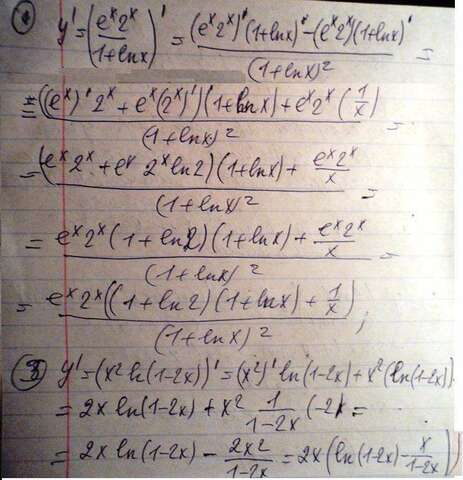 ① y' = (e^x 2^x / (1+ln x))' = ((e^x 2^x)'(1+ln x) - (e^x 2^x)(1+ln x)') / (1+ln x)^2 =
= (((e^x)' 2^x + e^x (2^x)')(1+ln x) + e^x 2^x (1/x)) / (1+ln x)^2 =
= ((e^x 2^x + e^x 2^x ln2)(1+ln x) + e^x 2^x / x) / (1+ln x)^2 =
= (e^x 2^x (1+ln2)(1+ln x) + e^x 2^x / x) / (1+ln x)^2 =
= e^x 2^x ((1+ln2)(1+ln x) + 1/x) / (1+ln x)^2 ;
y' = (x^2 ln(1-2x))' = (x^2)' ln(1-2x) + x^2 (ln(1-2x))
= 2x ln(1-2x) + x^2 1/(1-2x) (-2) =
= 2x ln(1-2x) - 2x^2/(1-2x) = 2x (ln(1-2x) - x/(1-2x))